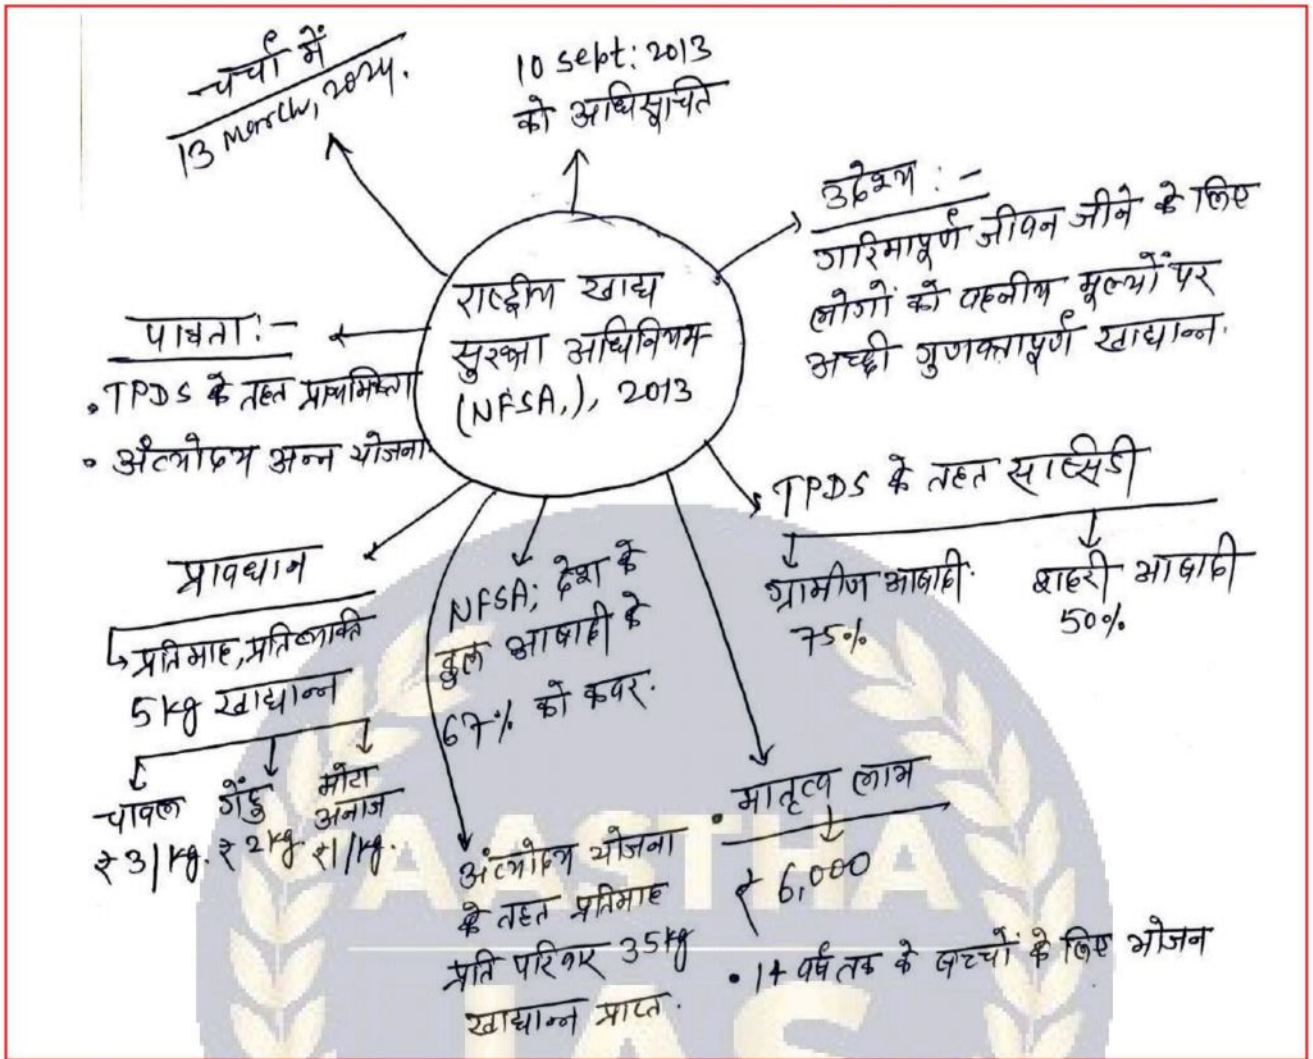 चर्चा में
13 March, 2024.
10 sept: 2013
को अधिसूचित
उद्देश्य : -
गरिमापूर्ण जीवन जीने के लिए
लोगों को वहनीय मूल्यों पर
अच्छी गुणवत्तापूर्ण खाद्यान्न.
राष्ट्रीय खाद्य
सुरक्षा अधिनियम
(NFSA,), 2013
पात्रता : -
• TPDS के तहत प्राथमिकता
• अंत्योदय अन्न योजना
TPDS के तहत सब्सिडी
ग्रामीण आबादी
75%
शहरी आबादी
50%
प्रावधान
प्रतिमाह, प्रतिव्यक्ति
5 kg खाद्यान्न
चावल
₹ 3/kg.
गेंहु
₹ 2 kg.
मोटा
अनाज
₹1/kg.
NFSA; देश के
कुल आबादी के
67% को कवर.
अंत्योदय योजना
के तहत प्रतिमाह
प्रति परिवार 35kg
खाद्यान्न प्राप्त.
• मातृत्व लाभ
₹ 6,000
• 14 वर्ष तक के बच्चों के लिए भोजन
AASTHA
IAS